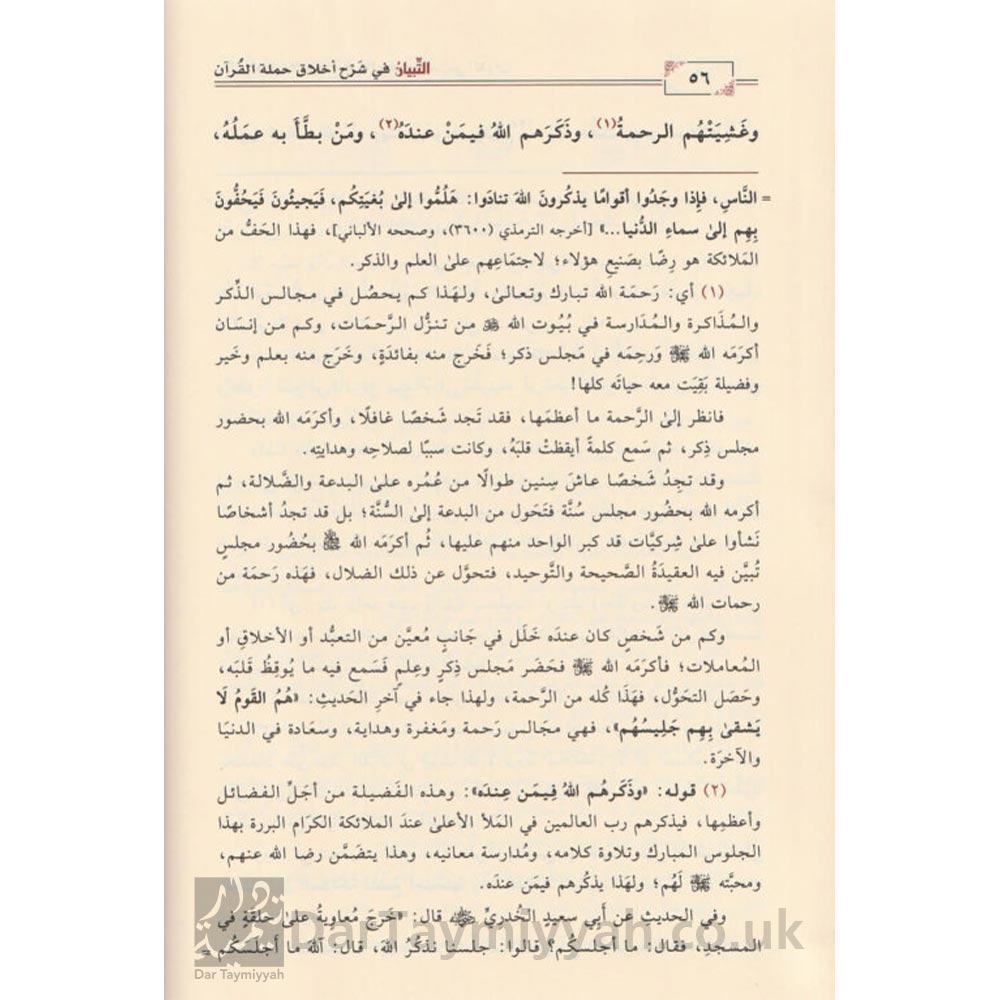 ٥٦
التِّبيان في شَرْح أخلاق حملة القُرآن
وغَشِيَتْهُم الرحمةُ(١)، وذَكَرَهم اللهُ فيمَنْ عندَهُ(٢)، ومَنْ بطَّأَ به عمَلُهُ،
= النَّاسِ، فإِذا وجَدُوا أقوامًا يذكُرونَ اللهَ تنادَوا: هَلُمُّوا إلىٰ بُغيَتِكُم، فَيَجيئُونَ فَيَحُفُّونَ
بِهِم إلىٰ سماءِ الدُّنيا...» [أخرجه الترمذي (٣٦٠٠)، وصححه الألباني]، فهذا الحَفُّ من
المَلائكة هو رِضًا بصَنيعِ هؤلاء؛ لاجتماعِهم علىٰ العلم والذكر.
(١) أي: رَحمَة الله تبارك وتعالىٰ، ولهَذا كم يحصُل في مجالس الذِّكر
والـمُذَاكرة والمُدَارسة في بُيُوت الله ﷿ من تنزُّل الرَّحمَات، وكم من إنسَان
أكرَمَه الله ﷿ وَرحِمَه في مَجلس ذكر؛ فَخَرج منه بفائدَةٍ، وخَرَج منه بعلم وخَير
وفضيلة بَقِيَت معه حياتَه كلها!
فانظر إلىٰ الرَّحمة ما أعظمَها، فقد تَجد شَخصًا غافلًا، وأكرَمَه الله بحضور
مجلس ذِكر، ثم سَمع كلمةً أيقظتْ قلبَهُ، وكانت سببًا لصلاحِه وهدايتِه.
وقد تجِدُ شَخصًا عاشَ سِنين طوالًا من عُمُره علىٰ البدعة والضَّلالة، ثم
أكرمه الله بحضُور مجلس سُنَّة فتَحَول من البدعة إلىٰ السُّنَّة؛ بل قد تجدُ أشخاصًا
نَشأوا علىٰ شِركيَّات قد كبر الواحد منهم عليها، ثُم أكرَمَه الله ﷿ بحُضُور مجلسٍ
تُبيَّن فيه العقيدَةُ الصَّحيحة والتَّوحيد، فتحوَّل عن ذلك الضلال، فهَذه رَحمَة من
رحمات الله ﷿.
وكم من شَخصٍ كان عنده خَلَل في جَانبٍ مُعيَّن من التعبُّد أو الأخلاقِ أو
المُعاملات؛ فأكرَمَه الله ﷿ فحَضَر مَجلس ذِكرٍ وعِلمٍ فَسَمع فيه ما يُوقِظُ قلبَه،
وحَصَل التحَوُّل، فهَذَا كُله من الرَّحمة، ولهذا جاء في آخرِ الحَديثِ: «هُمُ القَومُ لَا
يَشقىٰ بِهِم جَلِيسُهُم»، فهي مجَالس رَحمة ومَغفرة وهداية، وسعَادة في الدنيَا
والآخرَة.
(٢) قوله: «وذَكَرهُم اللهُ فِيمَن عِندَه»: وهذه الفَضيلة من أجَلِّ الفضائل
وأعظمِها، فيذكرهم رب العالمين في المَلأ الأعلىٰ عندَ الملائكة الكرَام البررة بهذا
الجلوس المبارك وتلاوة كلامه، ومُدارسة معانيه، وهذا يتضَمَّن رضا الله عنهم،
ومحبَّته ﷿ لَهُم؛ ولهَذا يذكُرهم فيمَن عندَه.
وفي الحديث عن أَبي سعيدٍ الخُدريِّ ﵁ قال: «خَرَجَ مُعاويةُ علىٰ حلقَةٍ في
المسجدِ، فقال: ما أجلسَكُم؟ قالوا: جلَسنا نَذكُرُ اللهَ، قال: آللهِ ما أجلسَكُم =
Dar Taymiyyah
DarTaymiyyah.co.uk